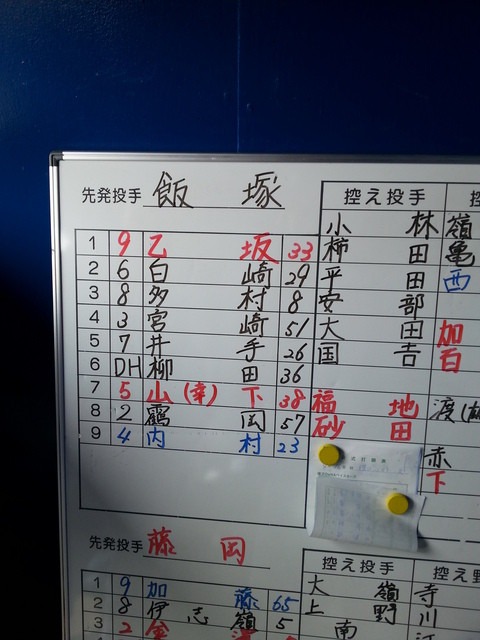 先発投手 飯塚
控え投手
1 9 乙坂 33
2 6 白崎 29
3 8 多村 8
4 3 宮崎 51
5 7 井手 26
6 DH 柳田 36
7 5 山(幸)下 38
8 2 鶴岡 57
9 4 内村 23
小林
柿田
平田
安部
大田
国吉
福地
砂田
嶺
亀
西
加
百
渡
赤
下
先発投手 藤岡
控え投手
控え野
1 9 加藤 65
2 8 伊志嶺 5
3 2 金澤
大嶺
上野
南
寺
川